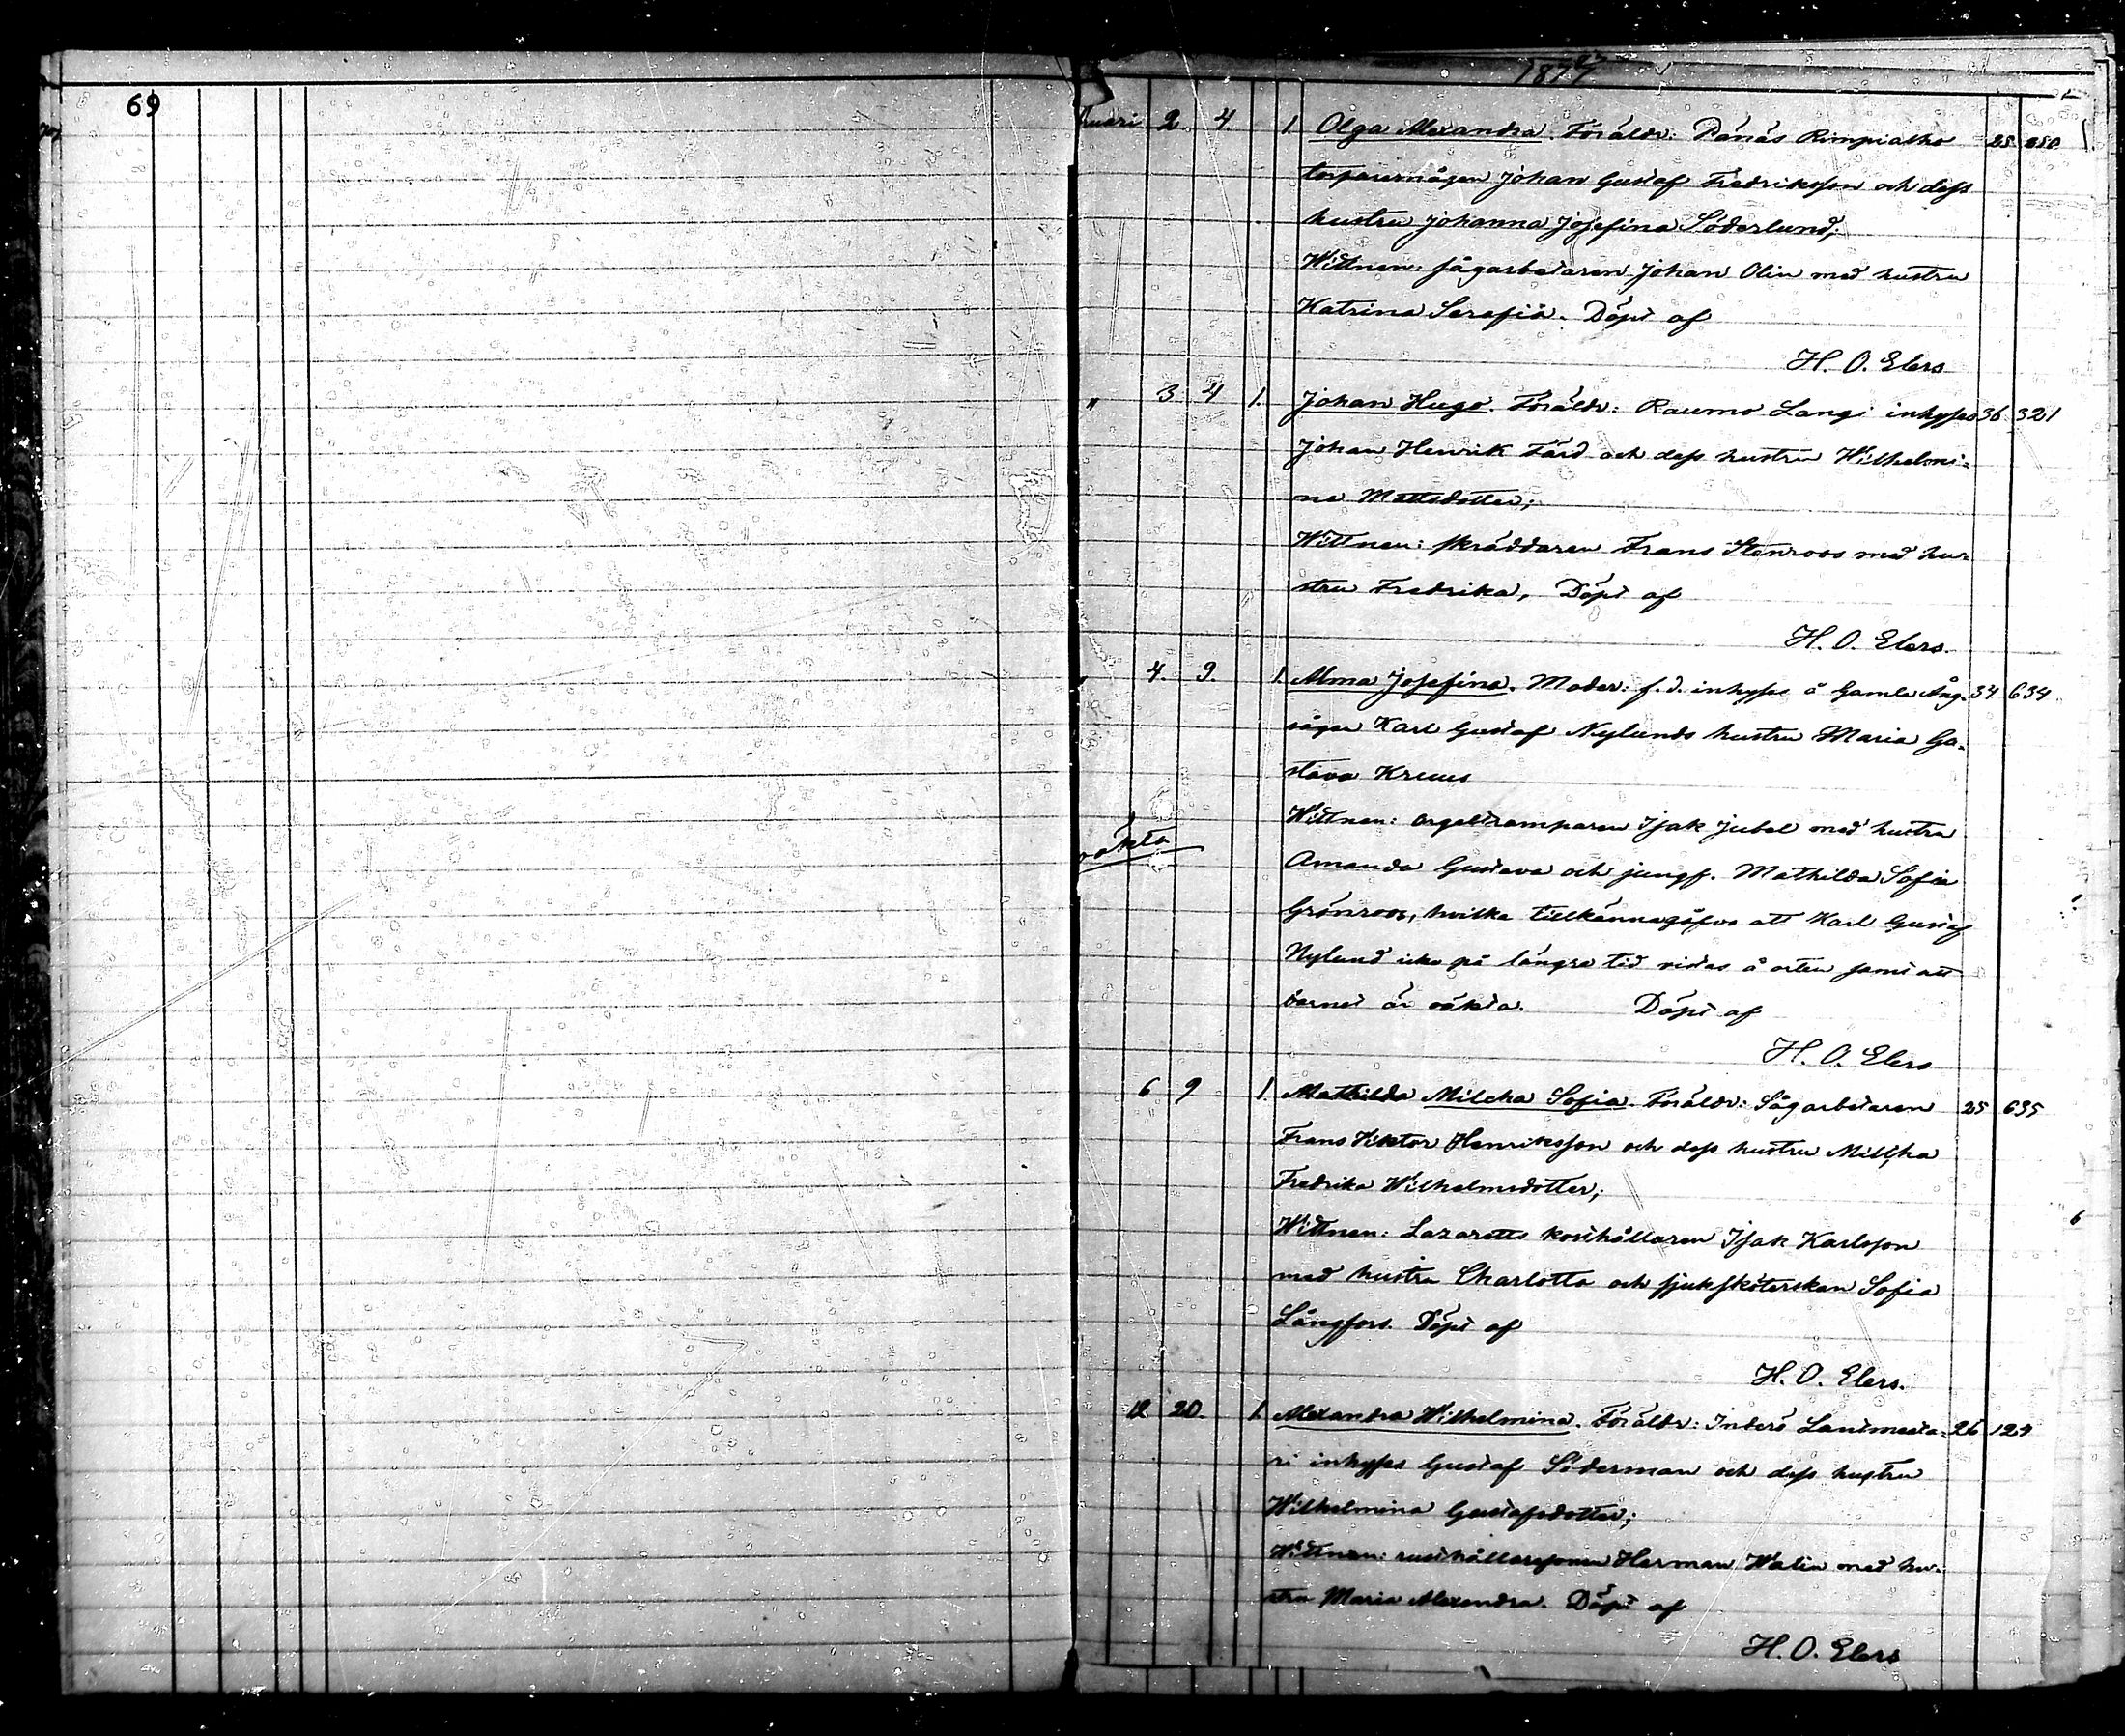 69
1877
2. 4. 1 Olga Alexandra. Föräldr: Dänäs Rimpialho 25 850
torparemågen Johan Gustaf Fredriksson och dess
hustru Johanna Josefina Söderlund;
Wittnen: sågarbetaren Johan Olin med hustru
Katrina Serafia. Döpt af
H. O. Elers
" 3 4 1. Johan Hugo. Föräldr: Raumo Langi inhyses 36 321
Johan Henrik Färd och dess hustru Wilhelmi-
na Mattsdotter;
Wittnen: skräddaren Frans Stenroos med hu-
stru Fredrika, Döpt af
H. O. Elers.
4. 9. 1. Alma Josefina. Moder: f.d. inhyses å Gamla Ång- 34 634
sågen Karl Gustaf Nylunds hustru Maria Gu-
stava Kruus
Wittnen: orgeltramparen Isak Jubel med hustru
oäkta
Amanda Gustava och jungf. Mathilda Sofia
Grönroos, hvilka tillkännagåfvo att Karl Gustaf
Nylund icke på längre tid vistas å orten samt att
barnet är oäkta. Döpt af
H. O. Elers
6 9 1 Mathilda Milcka Sofia. Föräldr: Sågarbetaren 25 635
Frans Viktor Henriksson och dess hustru
Fredrika Wilhelmsdotter;
Wittnen: Lazaretts kosthållaren Isak Karlsson
med hustru Charlotta och sjuksköterskan Sofia
Långfors. Döpt af
H. O. Elers.
12 20. 1. Alexandra Wilhelmina. Föräldr: Inderö Lantmesta- 26 124
ri inhyses Gustaf Söderman och dess hustru
Wilhelmina Gustafsdotter;
Wittnen: rusthållaresonen Herman Walin med hu-
stru Maria Alexandra. Döpt af
H. O. Elers